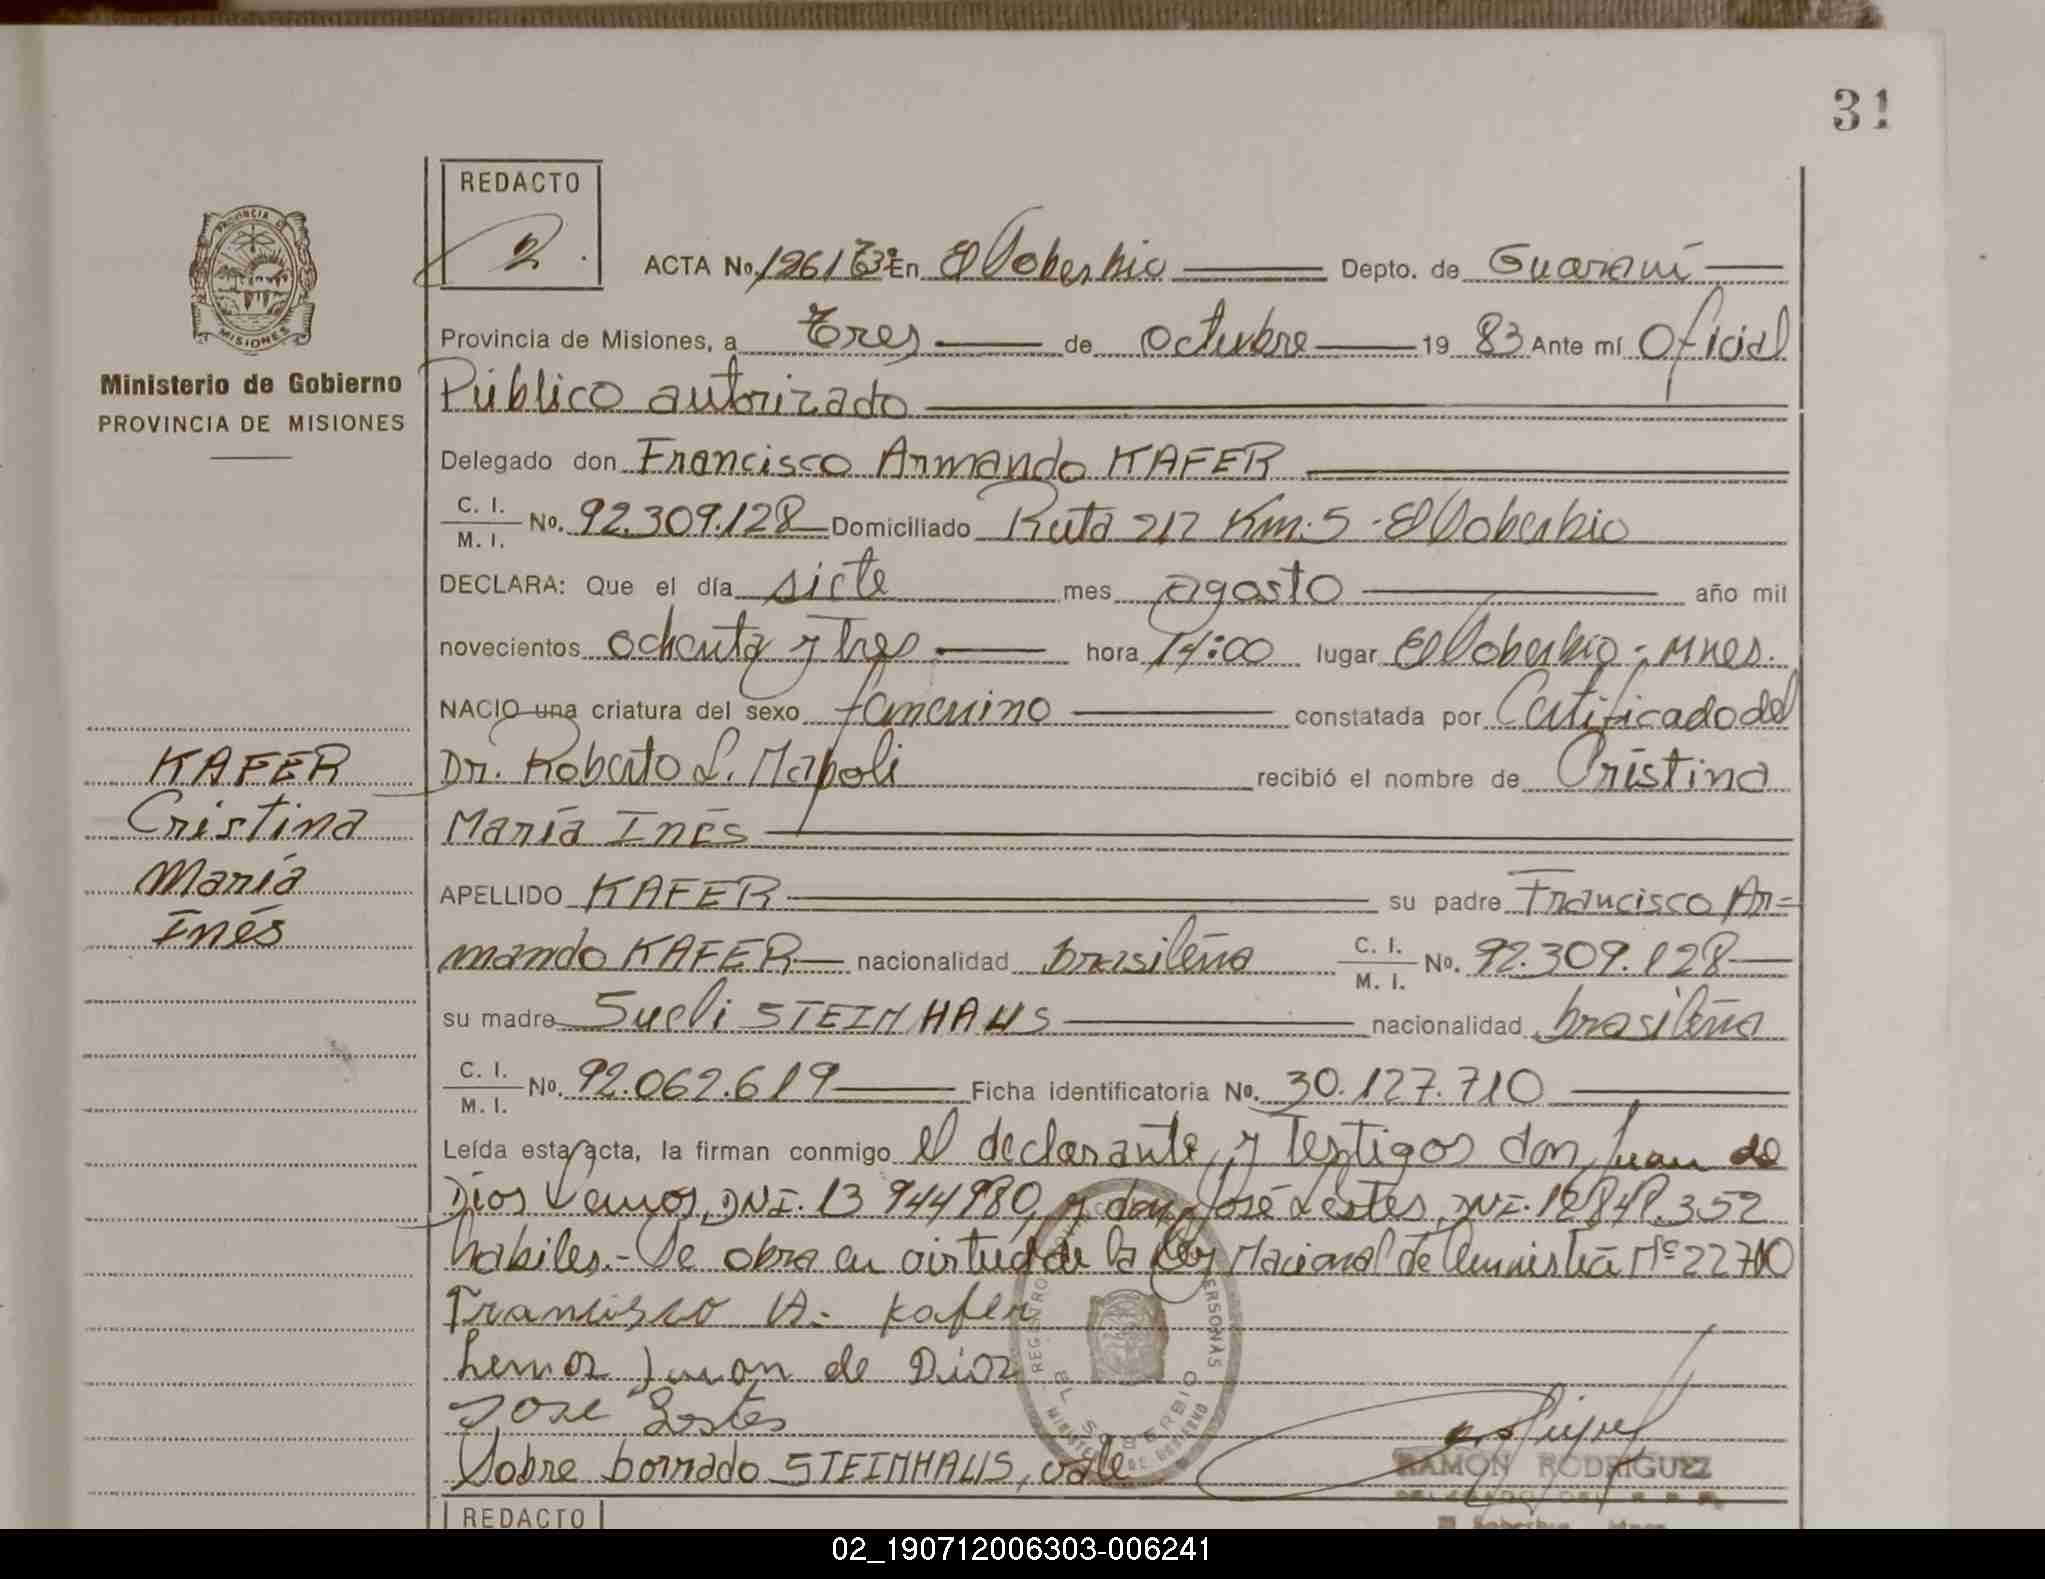 31
REDACTO
2.
PROVINCIA DE
MISIONES
Ministerio de Gobierno
PROVINCIA DE MISIONES
KAFER
Cristina
María
Inés
ACTA No. 1261 En El Soberbio Depto. de Guaraní
Provincia de Misiones, a tres de octubre 19 83 Ante mí Oficial
Público autorizado
Delegado don Francisco Armando KAFER
C. I.
M. I. No. 92.309.128 Domiciliado Ruta 212 Km. 5 - El Soberbio
DECLARA: Que el día siete mes agosto año mil
novecientos ochenta y tres hora 14:00 lugar El Soberbio - Mnes.
NACIO una criatura del sexo femenino constatada por Certificado del
Dr. Roberto L. Napoli recibió el nombre de Cristina
María Inés
APELLIDO KAFER su padre Francisco Ar=
mando KAFER nacionalidad brasileña C. I.
M. I. No. 92.309.128
su madre Sueli STEINHAUS nacionalidad brasileña
C. I.
M. I. No. 92.062.619 Ficha identificatoria No. 30.127.710
Leída esta acta, la firman conmigo el declarante, y testigos don Juan de
Dios Lemos, DNI. 13 944980, y don José Lestes, DNI. 12848.352
habiles.- Se obra en virtud de la Ley Nacional de Amnistía Nº 22710
Francisco A. Kafer
Lemos Juan de Dios
Jose Lestes
Sobre borrado STEINHAUS, vale
REGISTRO PERSONAS
EL SOBERBIO
MINISTERIO DE GOBIERNO
RAMON RODRIGUEZ
REDACTO
02_190712006303-006241